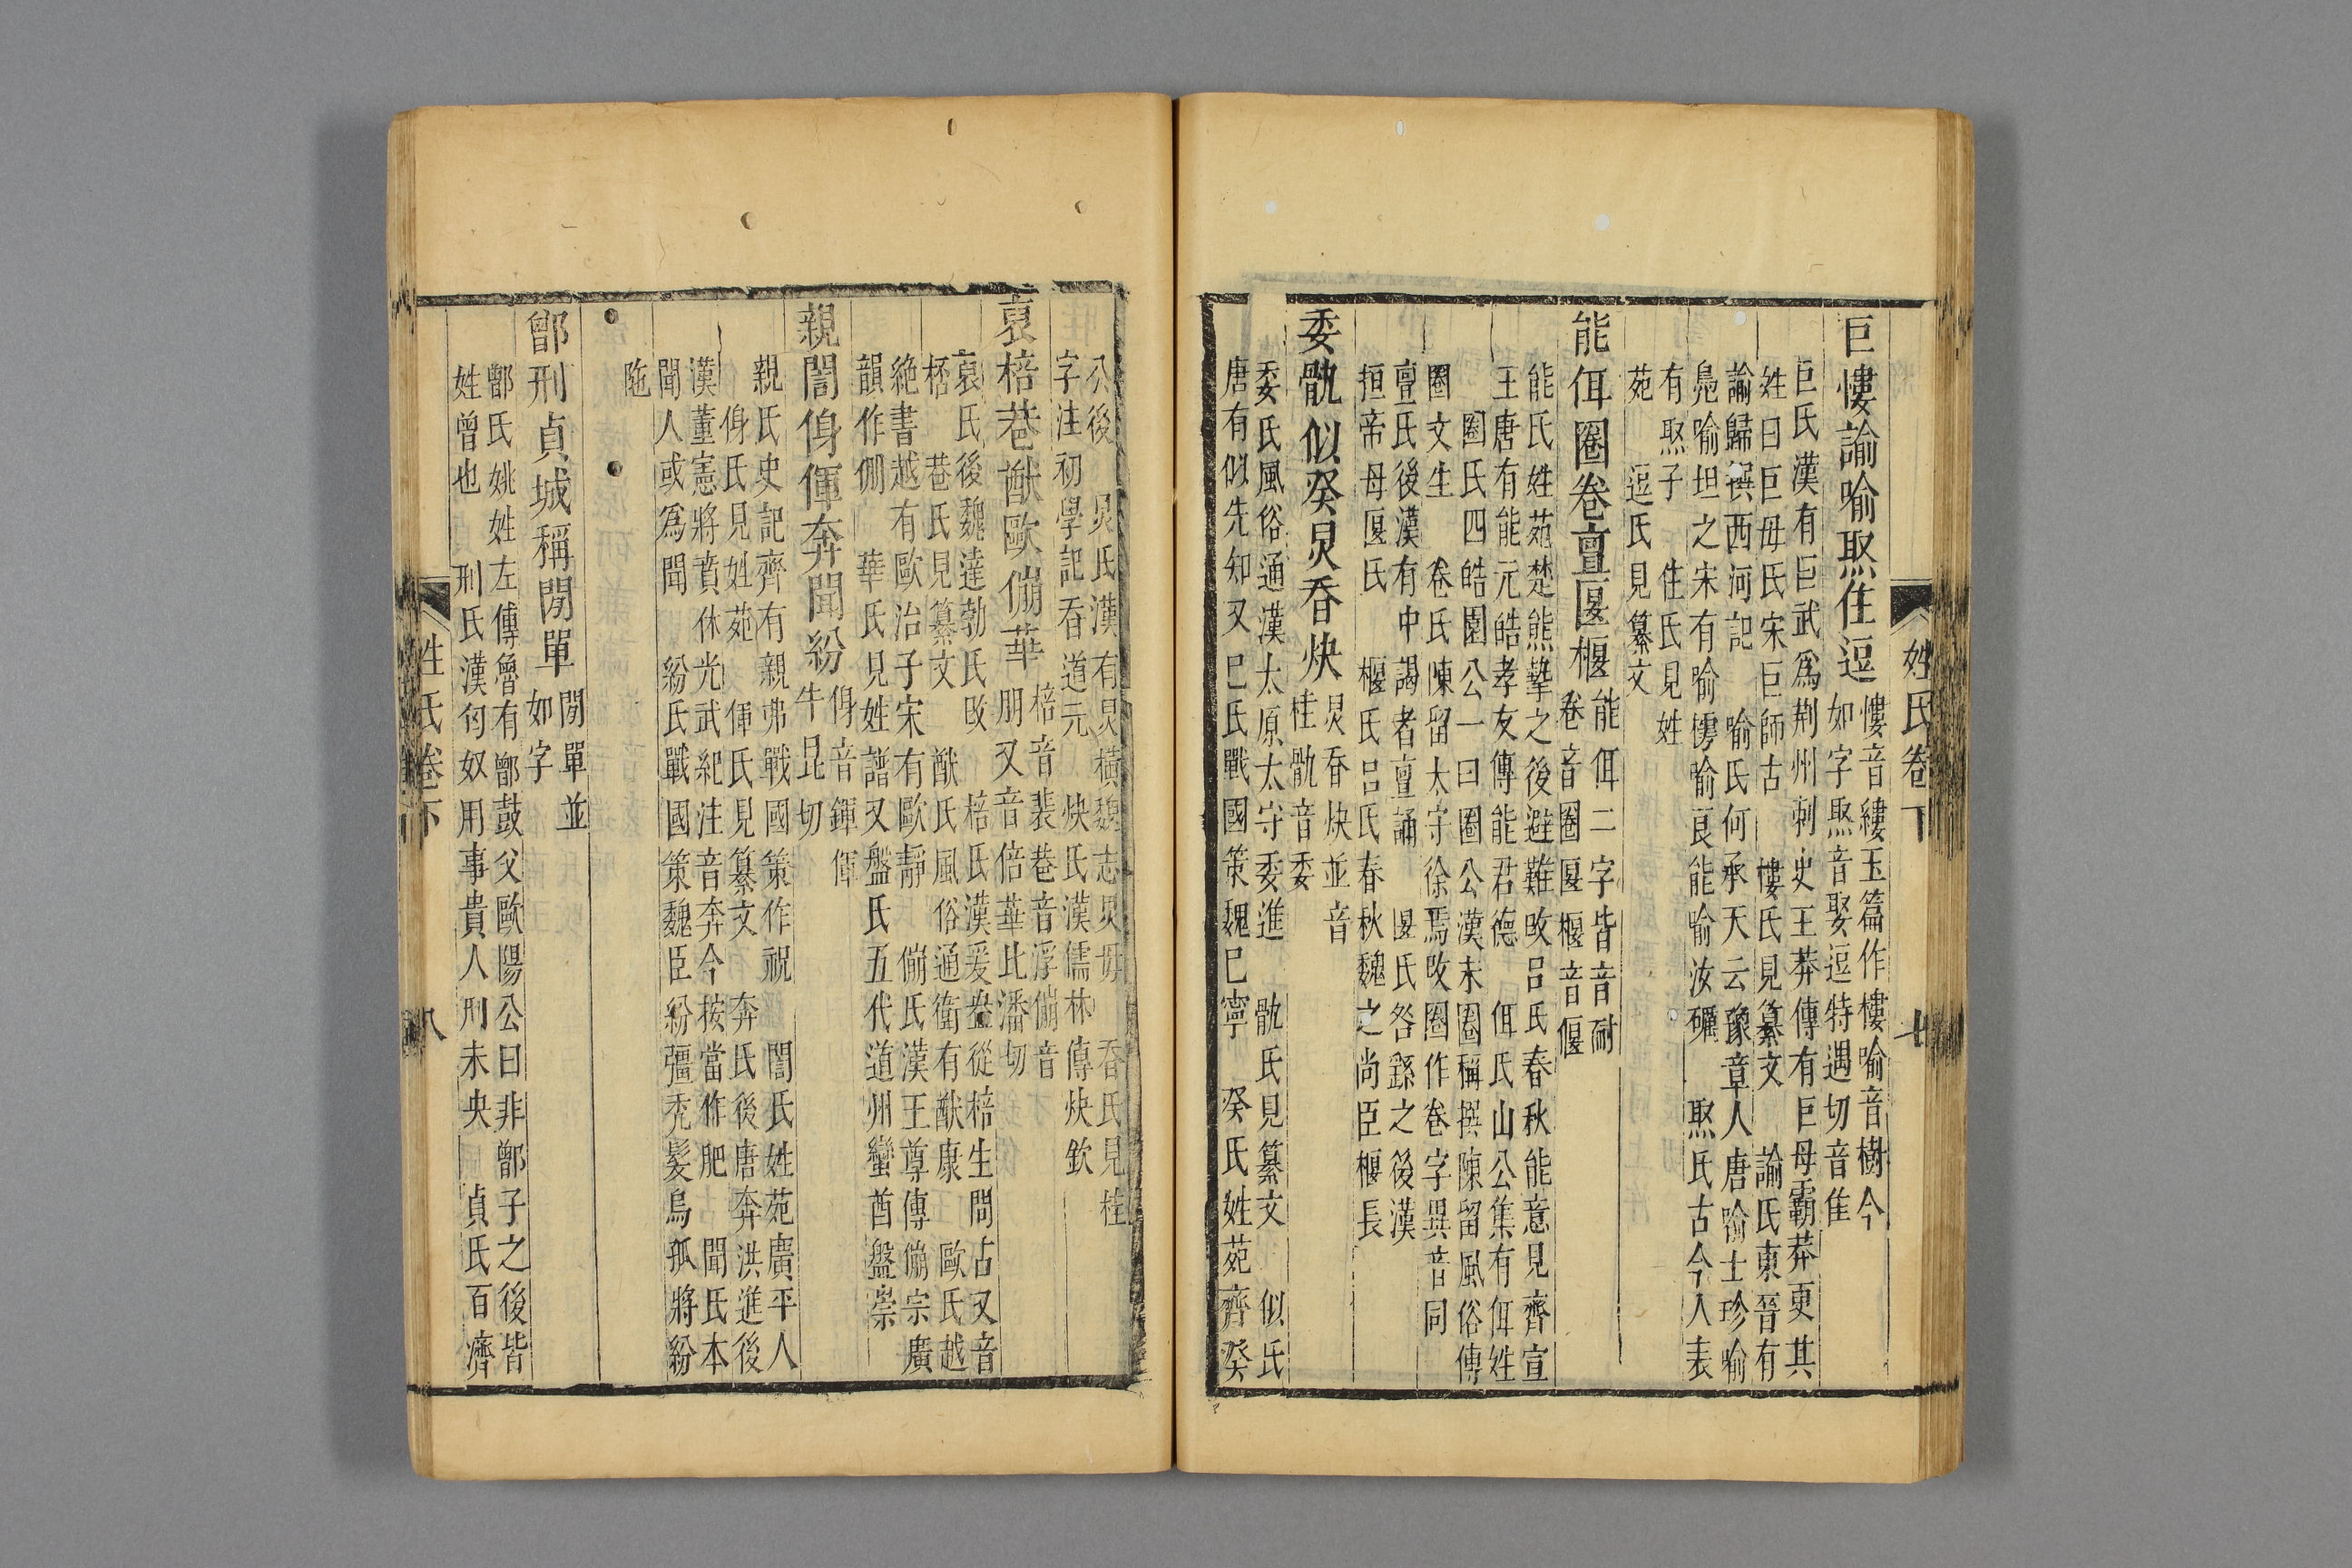 姓氏卷下
七
巨慺諭喻焣隹逗
慺音縷玉篇作樓喻音樹今
如字焣音娶逗特遇切音隹
巨氏漢有巨武爲荆州刺史王莽傳有巨母霸莽更其
姓曰巨毋氏宋巨師古　樓氏見纂文　諭氏東晉有
諭歸撰西河記　喻氏何承天云豫章人唐喻士珍喻
鳧喻坦之宋有喻樗喻良能喻汝礪　焣氏古今人表
有焣子　隹氏見姓
苑　逗氏見纂文
能佴圈卷亶匽椻
能佴二字皆音耐
卷音圈匽椻音偃
能氏姓苑楚熊摯之後避難改吕氏春秋能意見齊宣
王唐有能元皓孝友傳能君德　佴氏山公集有佴姓
圈氏四皓園公一曰圈公漢末圈稱撰陳留風俗傳
圈文生　卷氏陳留太守徐焉改圈作卷字異音同
亶氏後漢有中謁者亶誦　匽氏咎繇之後漢
㮓帝母匽氏　椻氏吕氏春秋魏之尚臣椻長
委骩似癸炅呑炔
炅呑炔並音
桂骩音委
委氏風俗通漢太原太守委進　骩氏見纂文　似氏
唐有似先知又巳氏戰國策魏巳寧　癸氏姓苑齊癸
公後　炅氏漢有炅横魏志炅毋　呑氏見桂
字注初學記呑道元　炔氏漢儒林傳炔欽
裒棓巷猷歐傰華
棓音裴巷音浮傰音
朋又音倍華此潘切
裒氏後魏達勃氏改　棓氏漢爰盎從棓生問占又音
棓　巷氏見纂文　猷氏風俗通衛有猷康　歐氏越
絶書越有歐冶子宋有歐靜　傰氏漢王尊傳傰宗廣
韻作倗　華氏見姓譜又盤氏五代道州蠻酋盤崇
親誾㑗惲奔聞紛
㑗音鍕惲
牛昆切
親氏史記齊有親弗戰國策作祝　誾氏姓苑廣平人
㑗氏見姓苑　惲氏見纂文　奔氏後唐奔洪進後
漢董憲將賁休光武紀注音奔今桉當作肥　聞氏本
聞人或爲聞　紛氏戰國策魏臣紛彊禿髮烏孤將紛
陁
鄫刑貞城稱閉單
閉單並
如字
鄫氏姚姓左傳魯有鄫鼓父歐陽公曰非鄫子之後皆
姓曾也　刑氏漢匈奴用事貴人刑未央　貞氏百濟
姓氏卷下
八